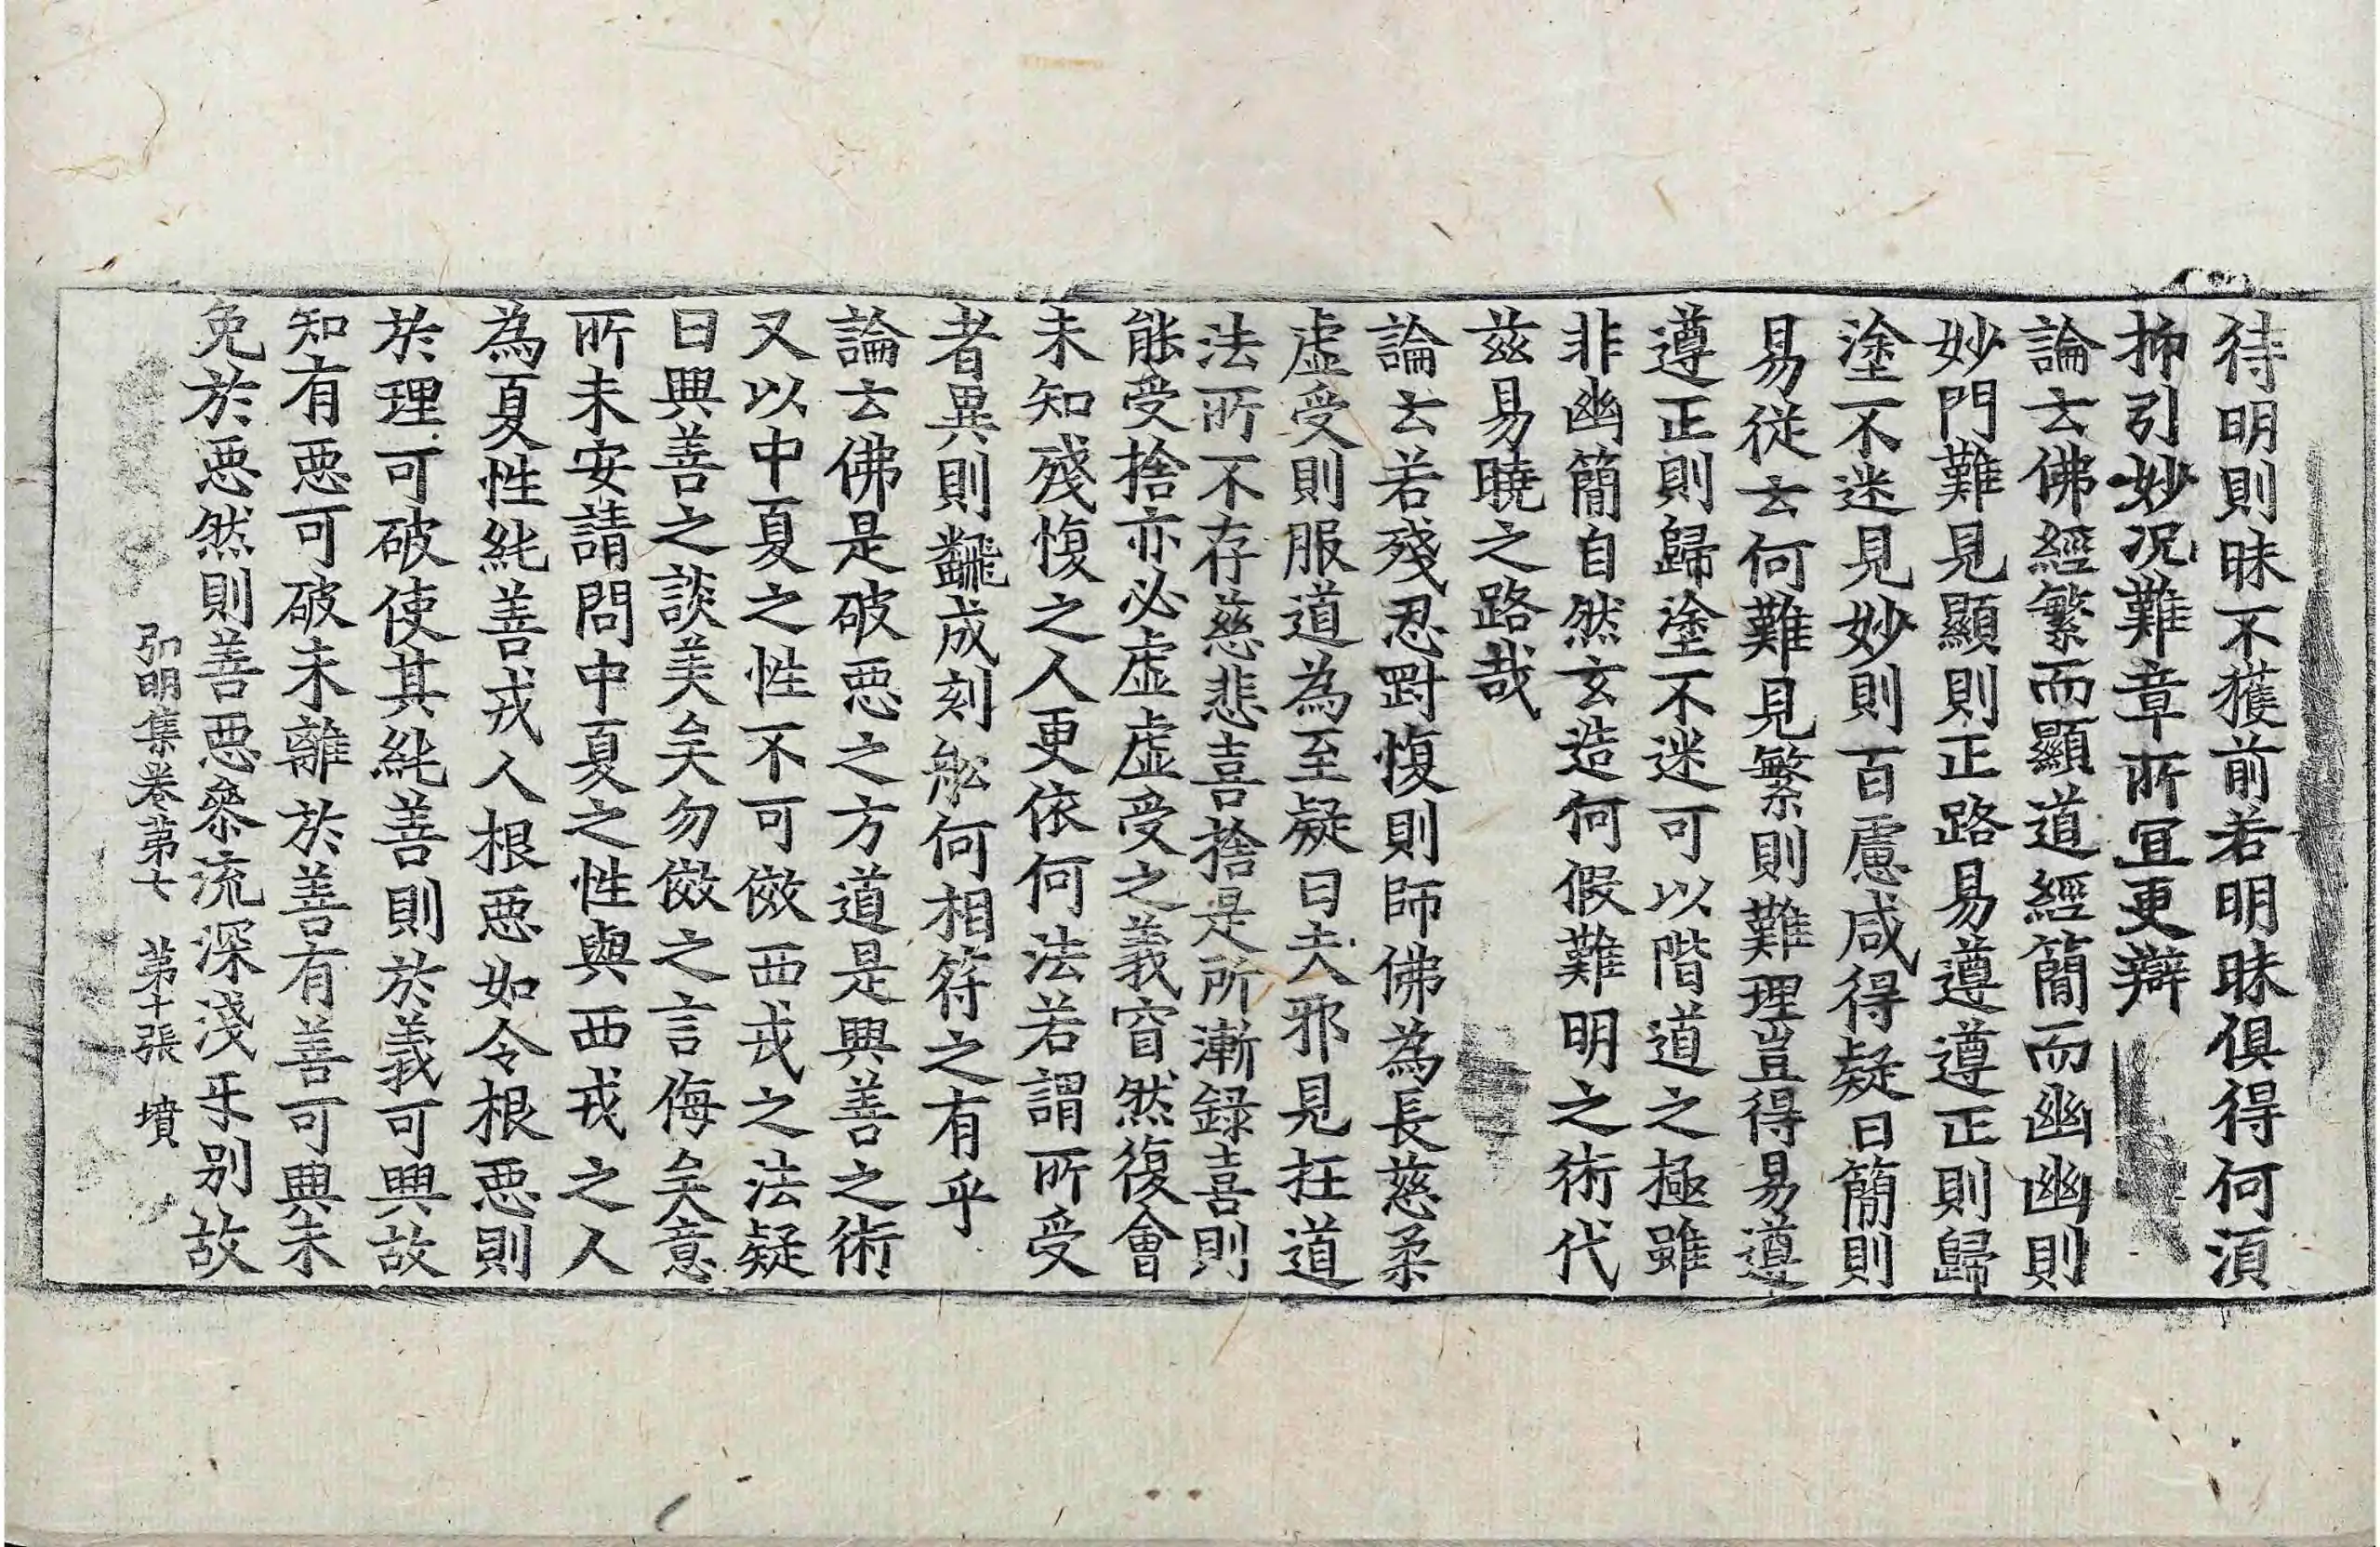 待明則昧不獲前若明昧俱得何湏
抑引妙況難章所冝更辯
論云佛經繁而顯道經簡而幽幽則
妙門難見顯則正路易遵遵正則歸
塗不迷見妙則百慮咸得疑曰簡則
易從云何難見繁則難理豈得易遵
遵正則歸塗不迷可以階道之極雖
非幽簡自然玄造何假難明之術代
茲易曉之路哉
論云若殘忍㓻愎則師佛為長慈柔
虛受則服道為至疑曰夫邪見抂道
法所不存慈悲喜捨是所漸錄喜則
能受捨亦必虛虛受之義窅然復會
未知殘愎之人更依何法若謂所受
者異則翻成刻舩何相符之有乎
論云佛是破惡之方道是興善之術
又以中夏之性不可傚西戎之法疑
曰興善之談美矣勿傚之言侮矣意
所未安請問中夏之性與西戎之人
為夏性純善戎人根惡如令根惡則
於理可破使其純善則於義可興故
知有惡可破未離於善有善可興未
免於惡然則善惡叅流深淺乐別故
弘明集卷第七　第十張　墳